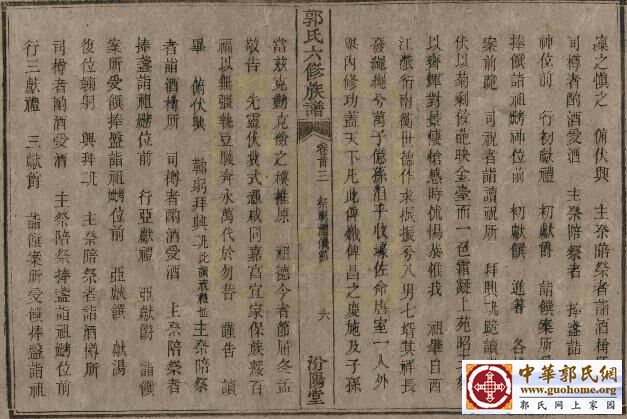 凜之慎之 俯伏興 主祭陪祭者詣酒樽
司樽者酌酒受酒 主祭陪祭者 捧盞詣
神位前 行初獻禮 初獻爵 詣饌案所
捧饌詣祖妣神位前 初獻饌 進箸 各
案前跪 司祝者詣讀祝所 拜興凡跪讀
伏以菊剩餘葩映金臺而一色霜凝上苑昭
以齊輝對景悽愴感時怵惕恭惟我 祖肇自西
江派衍南衡世德作求振振兮八男七壻其祥長
發繩繩兮萬子億孫洎乎收壕佐命唐室一人外
內修功蓋天下凡此傳俾昌之慶施及子孫
郭氏六修族譜 卷首三 祭祠禮儀節 六 汾陽堂
當茲克勤克儉之樸推原 祖德今者節屆冬
敬告 先靈伏冀式憑咸同嘉富宜家保族綏百
福以無疆執豆駿奔永萬代於勿替 謹告 讀
畢 俯伏興 鞠躬拜興凡此讀戒禮也主祭陪祭
者詣酒樽所 司樽者酌酒受酒 主祭陪祭者
捧盞詣祖妣位前 行亞獻禮 亞獻爵 詣饌
案所受饌捧盤詣祖妣位前 亞獻饌 獻湯
復位鞠躬 興拜凡 主祭陪祭者詣酒樽所
司樽者酌酒受酒 主祭陪祭者捧盞詣祖妣位前
行三獻禮 三獻爵 詣饌案所受饌捧盤詣祖
中華郭氏網
www.guohome.org
郭氏網上家園